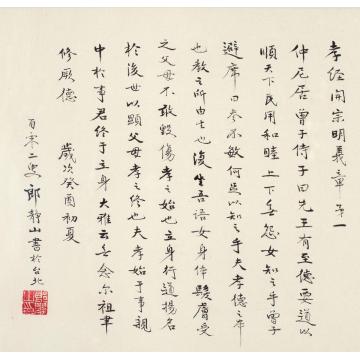 孝經開宗明義章第一
仲尼居曾子侍子曰先王有至德要道以
順天下民用和睦上下無怨女知之乎曾子
避席曰參不敏何足以知之乎夫孝德之本
也教之所由生也復坐吾語女身体髮膚受
之父母不敢毀傷孝之始也立身行道揚名
於後世以顯父母孝之終也夫孝始于事親
中於事君終于立身大雅云無念尔祖聿
修厥德 歲次癸酉初夏
百零二叟郎静山書於台北